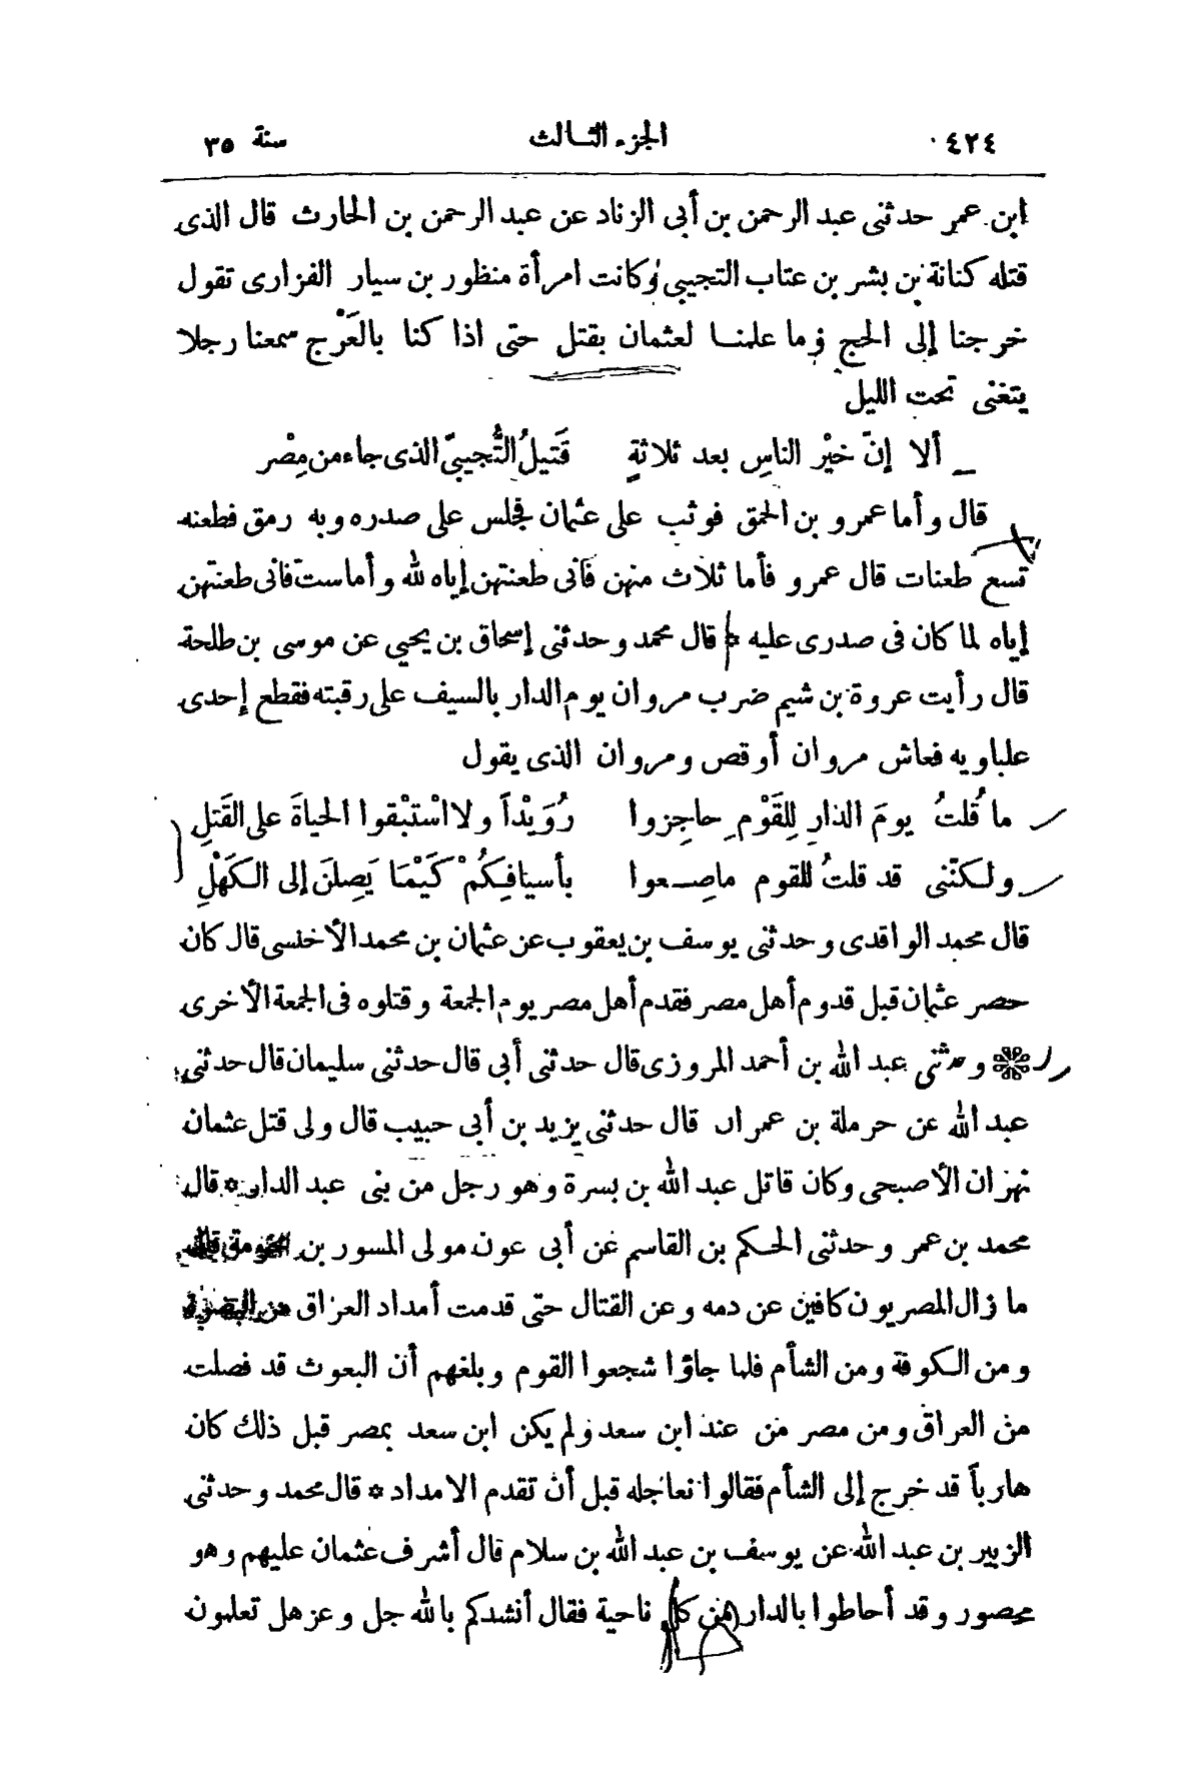 ٤٢٤ الجزء الثالث سنة ٣٥
ابن عمر حدثنى عبد الرحمن بن أبى الزناد عن عبد الرحمن بن الحارث قال الذى
قتله كنانة بن بشر بن عتاب التجيبى وكانت امرأة منظور بن سيار الفزارى تقول
خرجنا إلى الحج وما علمنا لعثمان بقتل حتى اذا كنا بالعَرْج سمعنا رجلا
يتغنى تحت الليل
ألا إنّ خيْر الناسِ بعد ثلاثةٍ قَتيلُ التُّجيبىّ الذى جاء من مِصْر
قال وأما عمرو بن الحمق فوثب على عثمان فجلس على صدره وبه رمق فطعنه
تسع طعنات قال عمرو فأما ثلاث منهن فانى طعنتهن إياه لله وأما ست فانى طعنتهن
إياه لما كان فى صدرى عليه * قال محمد وحدثنى إسحاق بن يحيى عن موسى بن طلحة
قال رأيت عروة بن شيم ضرب مروان يوم الدار بالسيف على رقبته فقطع إحدى
علباويه فعاش مروان أوقص ومروان الذى يقول
ما قُلتُ يومَ الدارِ لِلقَوْمِ حاجِزوا رُوَيْداً ولا اسْتبْقوا الحياةَ على القَتلِ
ولكنّنى قد قلتُ للقوم ماصِعوا بأسيافِكُمْ كَيْمَا يَصِلنَ إلى الكَهْلِ
قال محمد الواقدى وحدثنى يوسف بن يعقوب عن عثمان بن محمد الأخنسى قال كان
حصر عثمان قبل قدوم أهل مصر فقدم أهل مصر يوم الجمعة وقتلوه فى الجمعة الأخرى
وحدثنى عبد الله بن أحمد المروزى قال حدثنى أبى قال حدثنى سليمان قال حدثنى
عبد الله عن حرملة بن عمران قال حدثنى يزيد بن أبى حبيب قال ولى قتل عثمان
نهزان الأصبحى وكان قاتل عبد الله بن بسرة وهو رجل من بنى عبد الدار * قال
محمد بن عمر وحدثنى الحكم بن القاسم عن أبى عون مولى المسور بن مخرمة قال
ما زال المصريون كافين عن دمه وعن القتال حتى قدمت أمداد العراق من البصرة
ومن الكوفة ومن الشأم فلما جاؤا شجعوا القوم وبلغهم أن البعوث قد فصلت
من العراق ومن مصر من عند ابن سعد ولم يكن ابن سعد بمصر قبل ذلك كان
هارباً قد خرج إلى الشأم فقالوا نعاجله قبل أن تقدم الامداد * قال محمد وحدثنى
الزبير بن عبد الله عن يوسف بن عبد الله بن سلام قال أشرف عثمان عليهم وهو
محصور وقد أحاطوا بالدار من كل ناحية فقال أنشدكم بالله جل وعز هل تعلمون